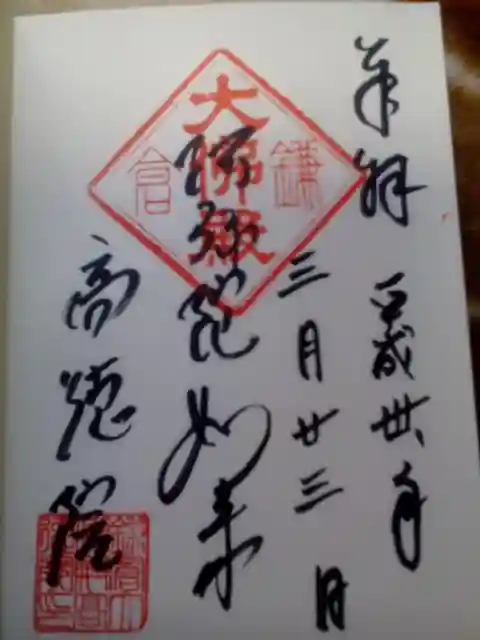 奉拝 平成丗年
三月廿三日
鎌倉
大佛殿
阿弥陀如来
高徳院